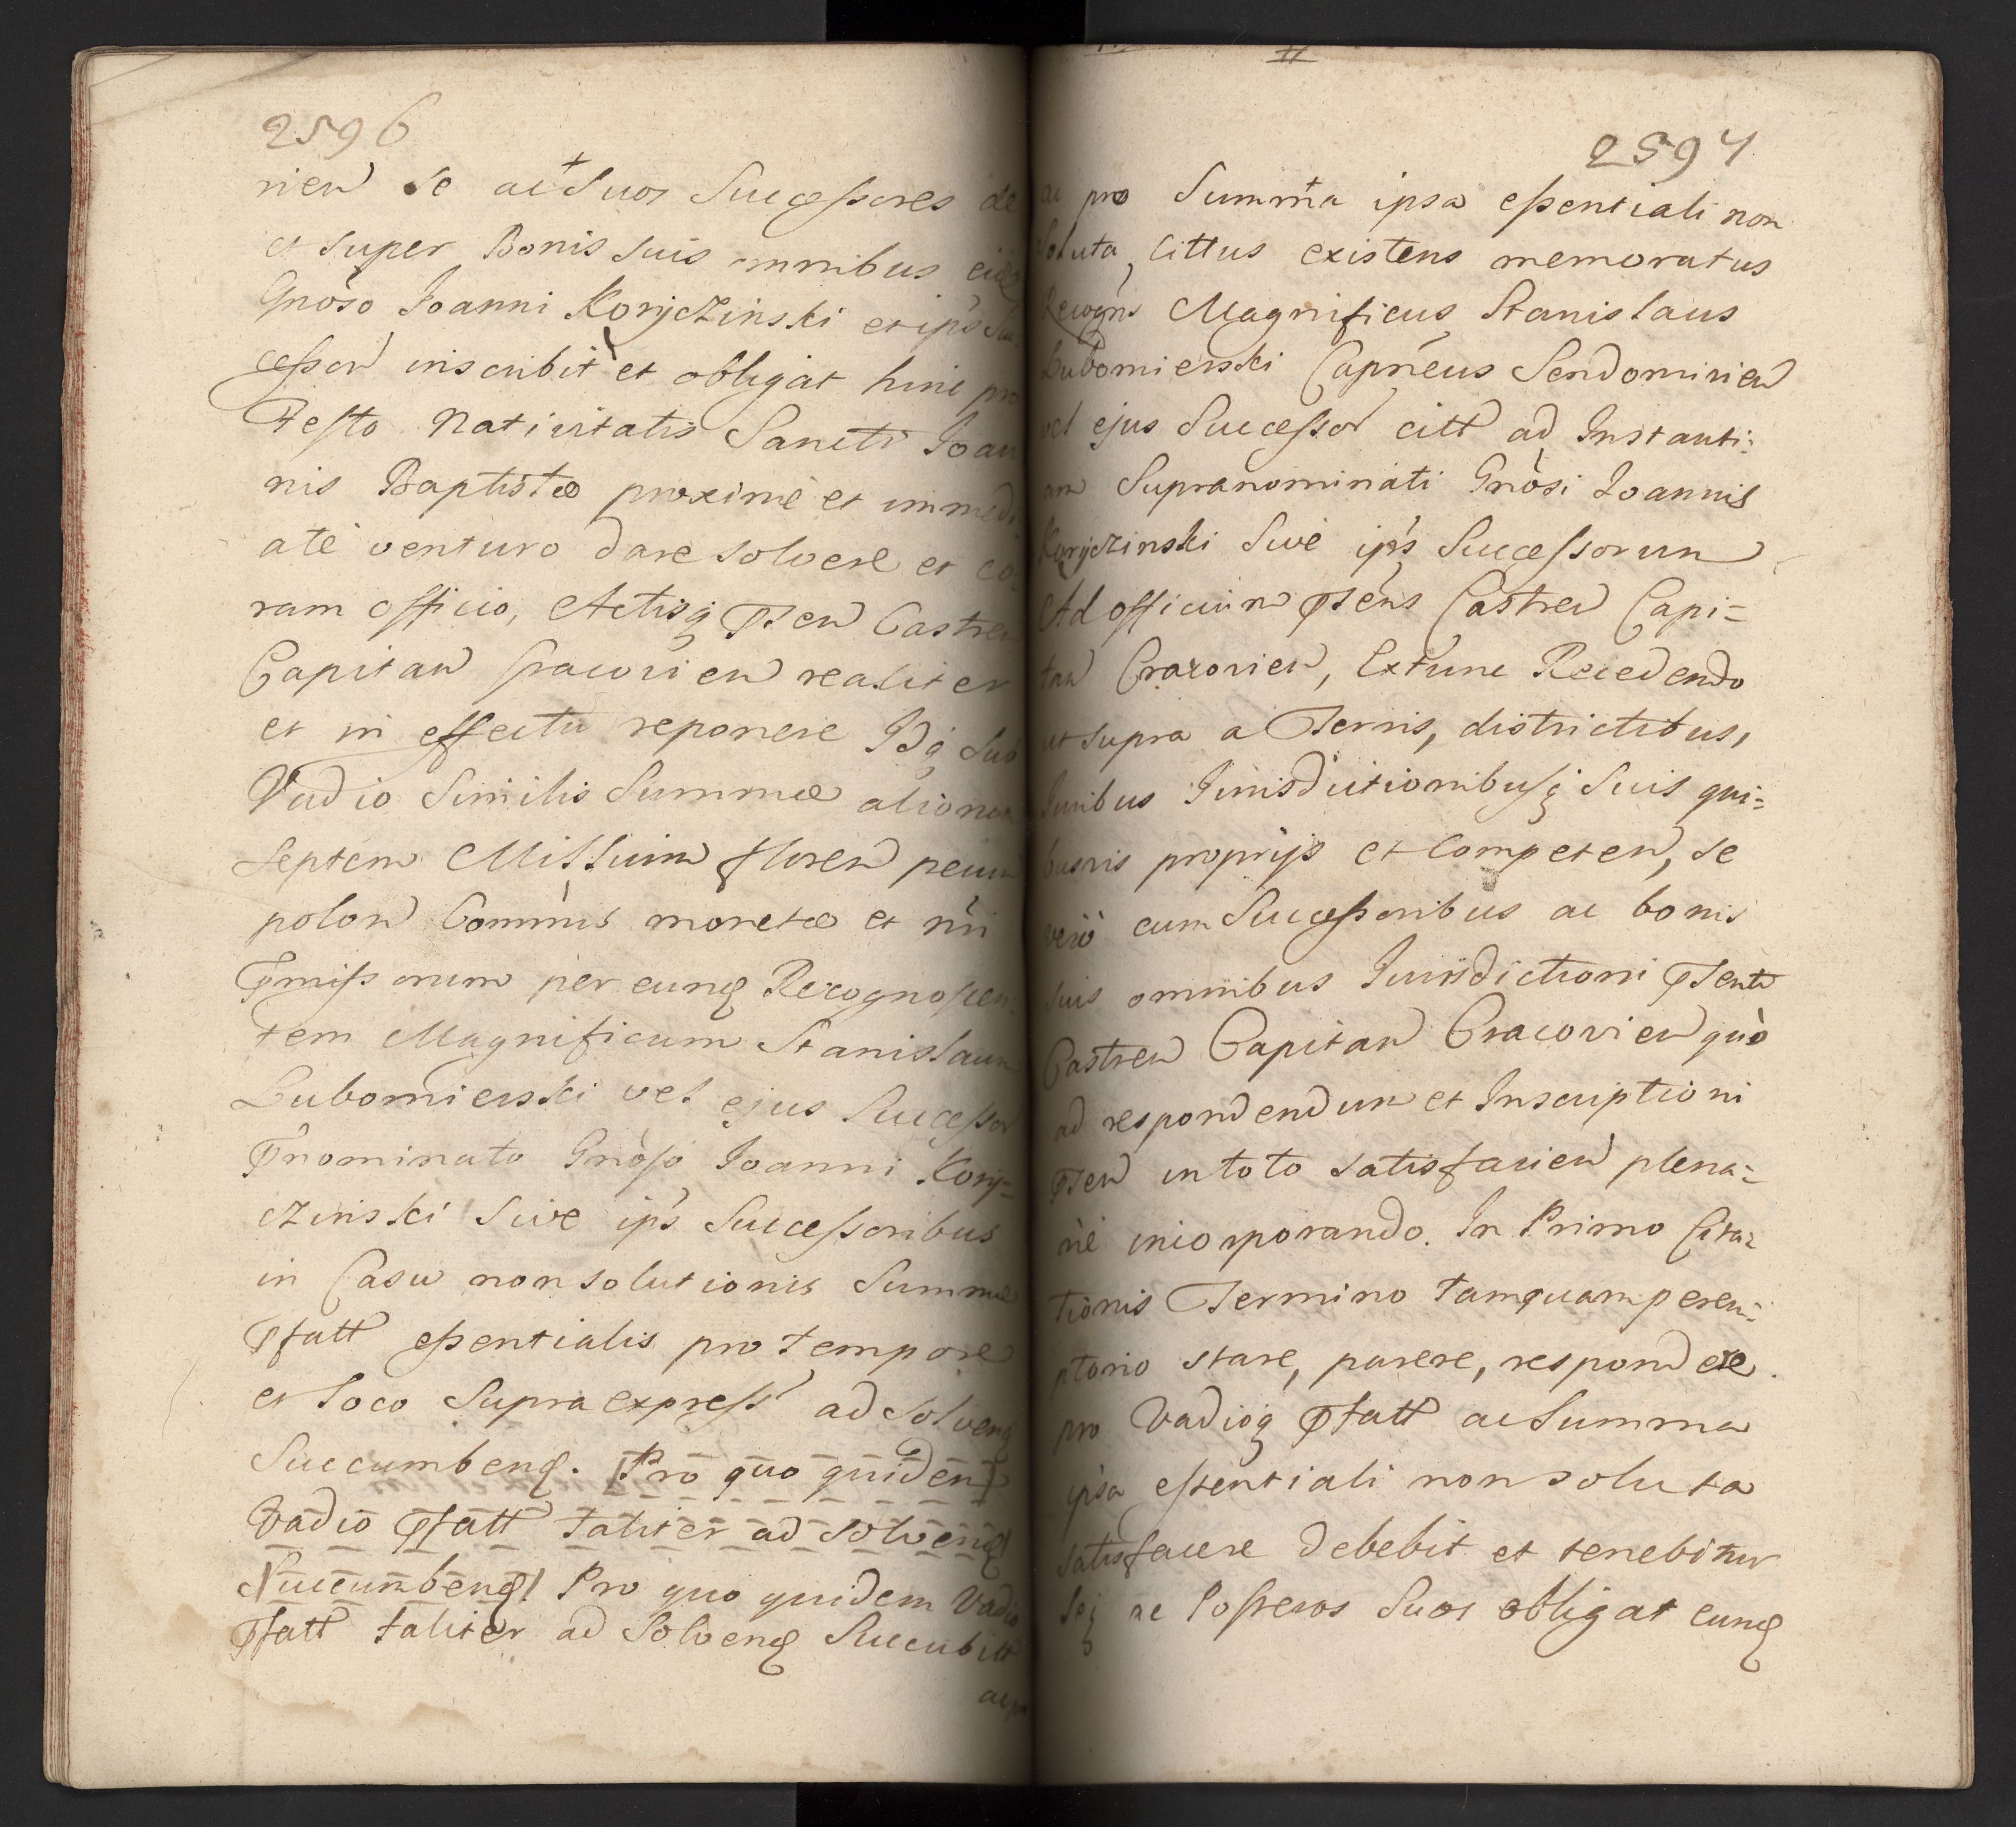 2596
rien se ac Suos Successores de
et super Bonis suis omnibus eid
Gnòso Joanni Koryczinski et ips Suc
cessor inscribit et obligat hinc pro
Festo Nativitatis Sancti Joan
nis Baptistæ proximè et immedi
atè venturo dare solvere et co
ram officio, Actisq pten Castren
Capitan Cracovien realiter
et in effectu reponere Idq sub
Vadio Similis Summæ alionem
Septem Millium floren pecun
polon Comminis monetæ et nri
pmissorum per eund Recognoscen
tem Magnificum Stanislaum
Lubomierski vel ejus Successor
pnominato Gnòso Joanni Kory=
czinski Sive ips Successoribus
in Casu non solutionis Summæ
pfatt essentialis pro tempore
et loco Supra express ad solvend
Succumbend. Pro quo quidem
Vadio pfatt taliter ad solvend
Succumbend Pro quo quidem Vadio
pfatt taliter ad Solvend Succubitt
ac pro
2597
ac pro Summa ipsa essentiali non
soluta, Cittus existens memoratus
Recogns Magnificus Stanislaus
Lubomierski Capneus Sendomirien
vel ejus Successor citt ad Instanti:
am Supranominati Gnòsi Joannis
Koryczinski Sive ips Successorum
Ad officium ptens Castren Capi=
tan Cracovien, Extunc Recedendo
ut supra a Terris, districtibus,
Juribus Jurisdictionibusq Suis qui=
busvis proprijs et Competen, se
verò cum Successoribus ac bonis
suis omnibus Jurisdictioni ptenti
Castren Capitan Cracovien quò
ad respondendum et Inscriptioni
pten in toto satisfacien plena=
riè incorporando. In Primo Cita=
tionis Termino tamquam perem=
ptorio stare, parere, respondere.
pro Vadioq pfatt ac Summa
ipsa essentiali non soluta
satisfacere debebit et tenebitur
seq ac Posteros Suos obligat eund